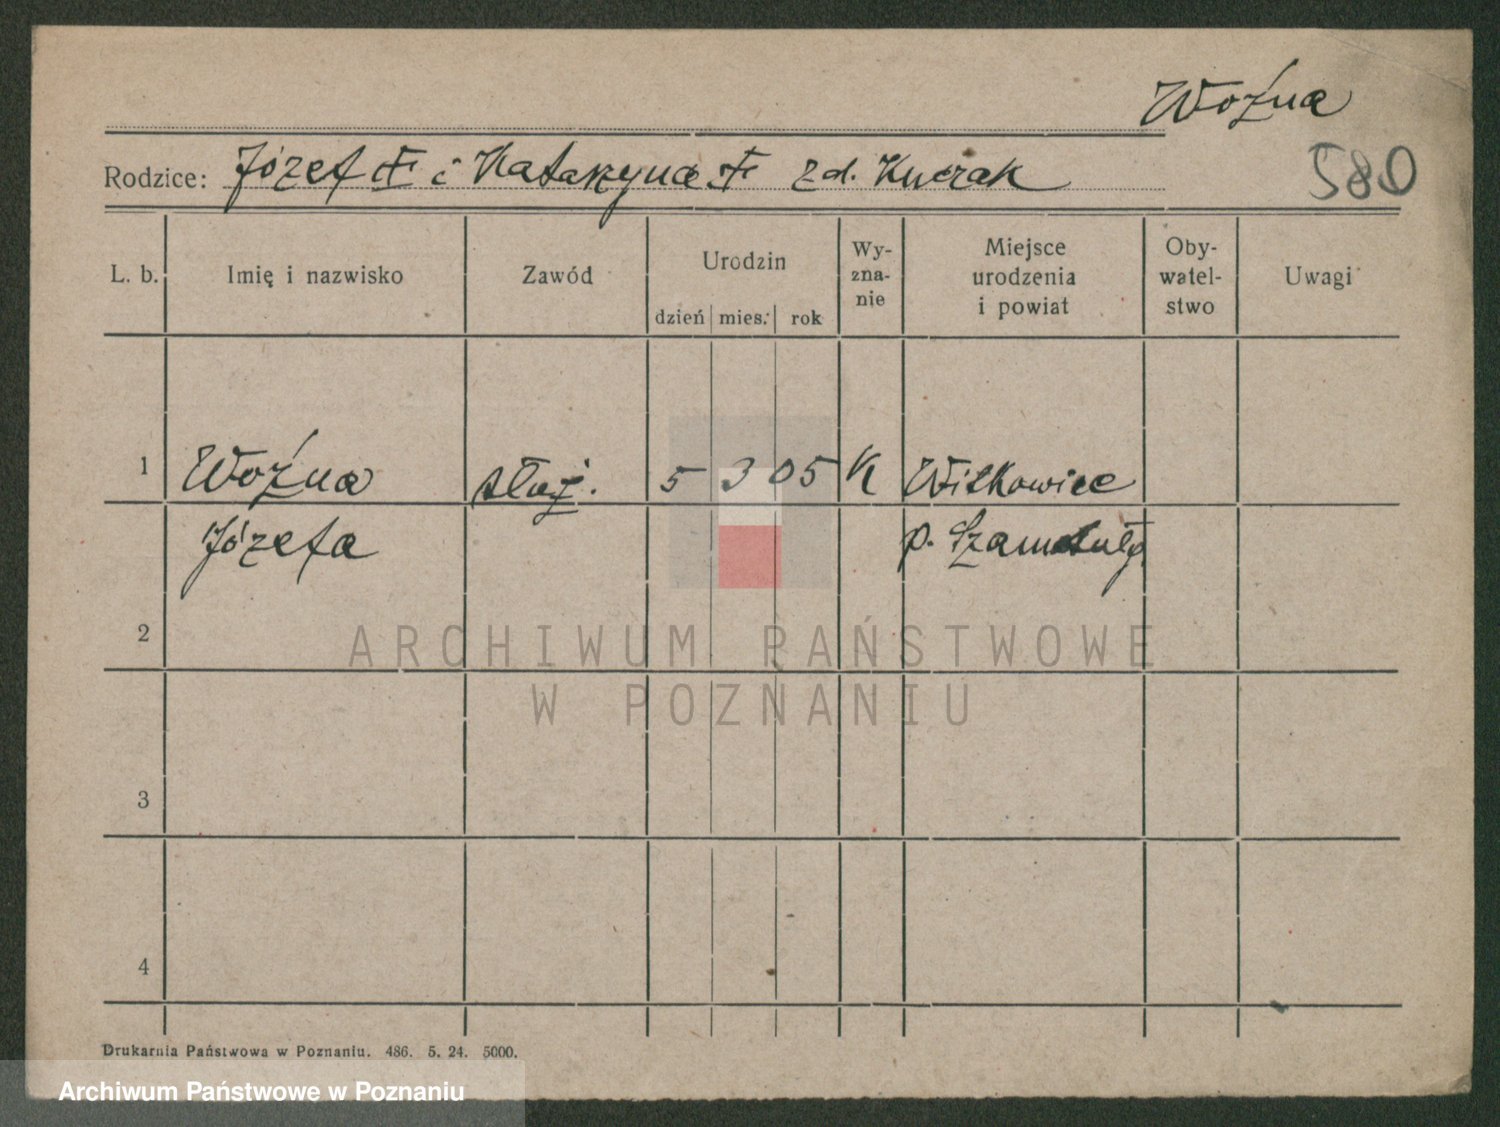 Woźna
580
Rodzice: Józef † i Katarzyna † z d. Kuczak
L. b. Imię i nazwisko Zawód Urodzin Wy-zna-nie Miejsce urodzenia i powiat Oby-watel-stwo Uwagi
dzień mies. rok
1 Woźna służ. 5 3 05 K Witkowice
Józefa p. Szamotuły
2
3
4
ARCHIWUM PAŃSTWOWE
W POZNANIU
Drukarnia Państwowa w Poznaniu. 486. 5. 24. 5000.
Archiwum Państwowe w Poznaniu